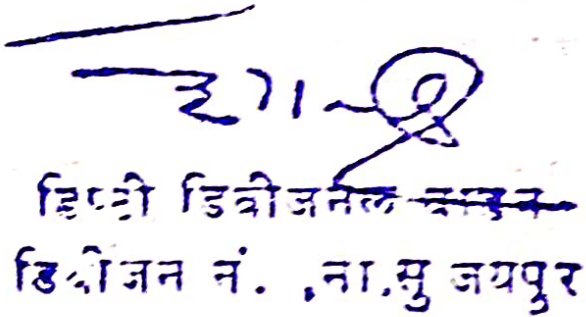 डिप्टी डिवीजनल वार्डन
डिवीजन नं. ,ना.सु जयपुर